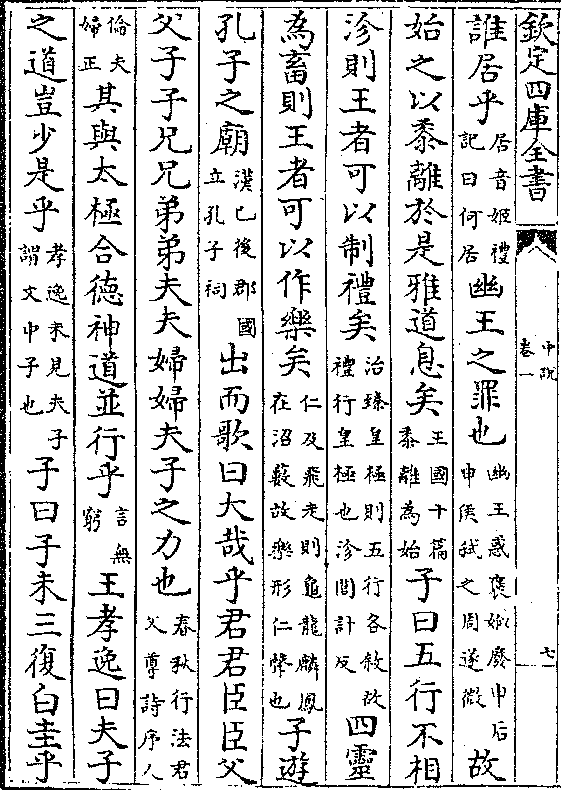 欽定四庫全書
中說
卷一
七
誰居乎居音姬禮記曰何居幽王之罪也幽王惑褒姒廢申后申侯弑之周遂微故
始之以黍離於是雅道息矣王國十篇黍離為始子曰五行不相
沴則王者可以制禮矣治臻皇極則五行各敘故禮行皇極也沴閭計反四靈
為畜則王者可以作樂矣仁及飛走則龜龍麟鳳在沼薮故樂形仁聲也子遊
孔子之廟漢已後郡國立孔子祠出而歌曰大哉乎君君臣臣父
父子子兄兄弟弟夫夫婦婦夫子之力也春秋行法君父尊詩序人
倫夫婦正其與太極合德神道並行乎言無窮王孝逸曰夫子
之道豈少是乎孝逸未見夫子謂文中子也子曰子未三復白圭乎